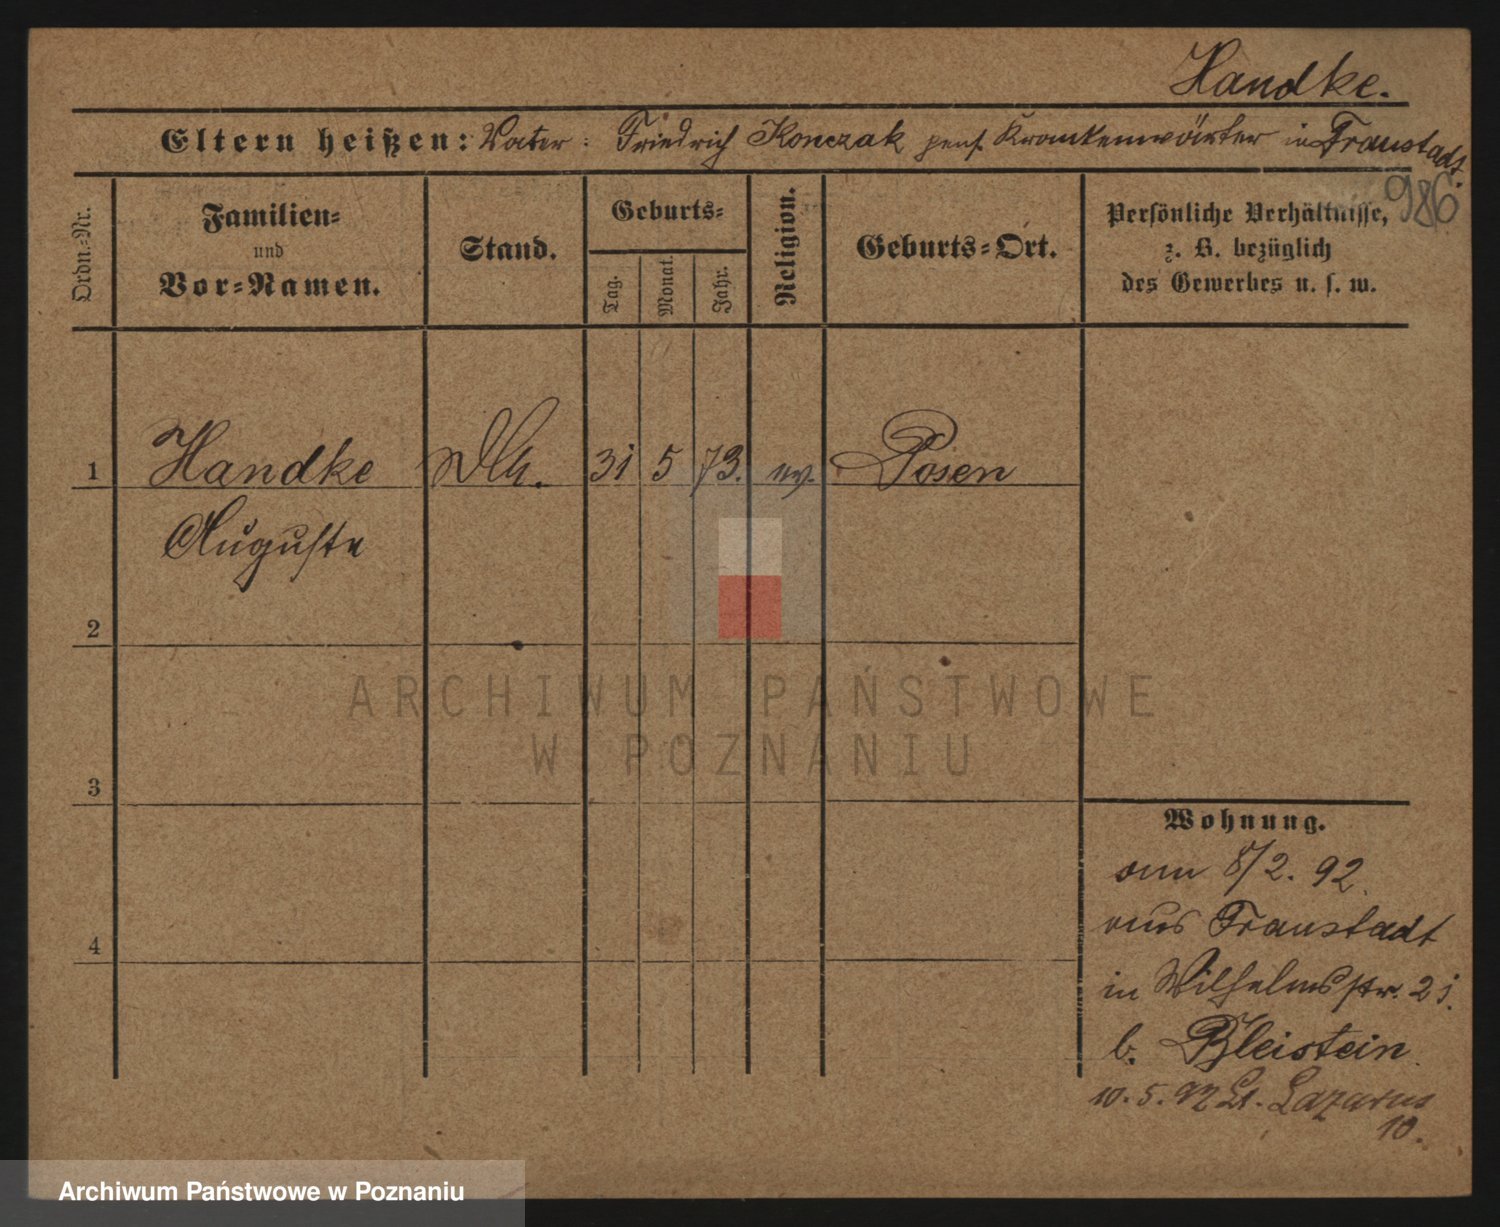 Handke.
Eltern heißen: Vater: Friedrich Konczak pens. Krankenwärter in Fraustadt.
986
Ordn=Nr.
Familien=
und
Vor=Namen.
Stand.
Geburts=
Tag.
Monat.
Jahr.
Religion.
Geburts=Ort.
Persönliche Verhältnisse,
z. B. bezüglich
des Gewerbes u. s. w.
1 Handke 31 5 73. ev. Posen
Auguste
2
3
4
ARCHIWUM PAŃSTWOWE
W POZNANIU
Wohnung.
am 8/2. 92.
aus Fraustadt
in Wilhelmsstr. 21.
b. Bleistein
10. 5. 92 St. Lazarus
10.
Archiwum Państwowe w Poznaniu